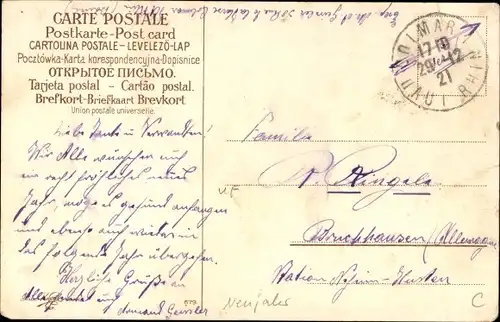 CARTE POSTALE
Postkarte-Post card
CARTOLINA POSTALE-LEVELEZŐ-LAP
Pocztówka-Karta korespondencyjna-Dopisnice
ОТКРЫТОЕ ПИСЬМО.
Tarjeta postal - Cartão postal.
Brefkort-Briefkaart Brevkort
Union postale universelle.
COLMAR
17 10
29 12
21
HAUT RHIN
Liebe Tante u Verwandten!
Wir Alle wünschen euch
ein recht fröhliches neues
Jahr, möge es gesund anfangen
und ebenso auch weiter in
das folgende Jahr übergehen.
Herzliche Grüße an
Alle und
Armand Geissler
Familie
R. Ringele
Bruchhausen (Allemagne
Station
Neujahr
C